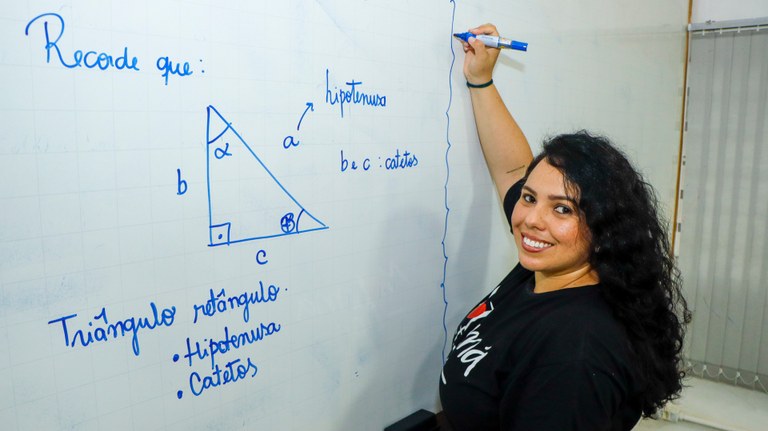 Recorde que:
hipotenusa
α
a
b
b e c : catetos
β
c
Triângulo retângulo.
• Hipotenusa
• Catetos